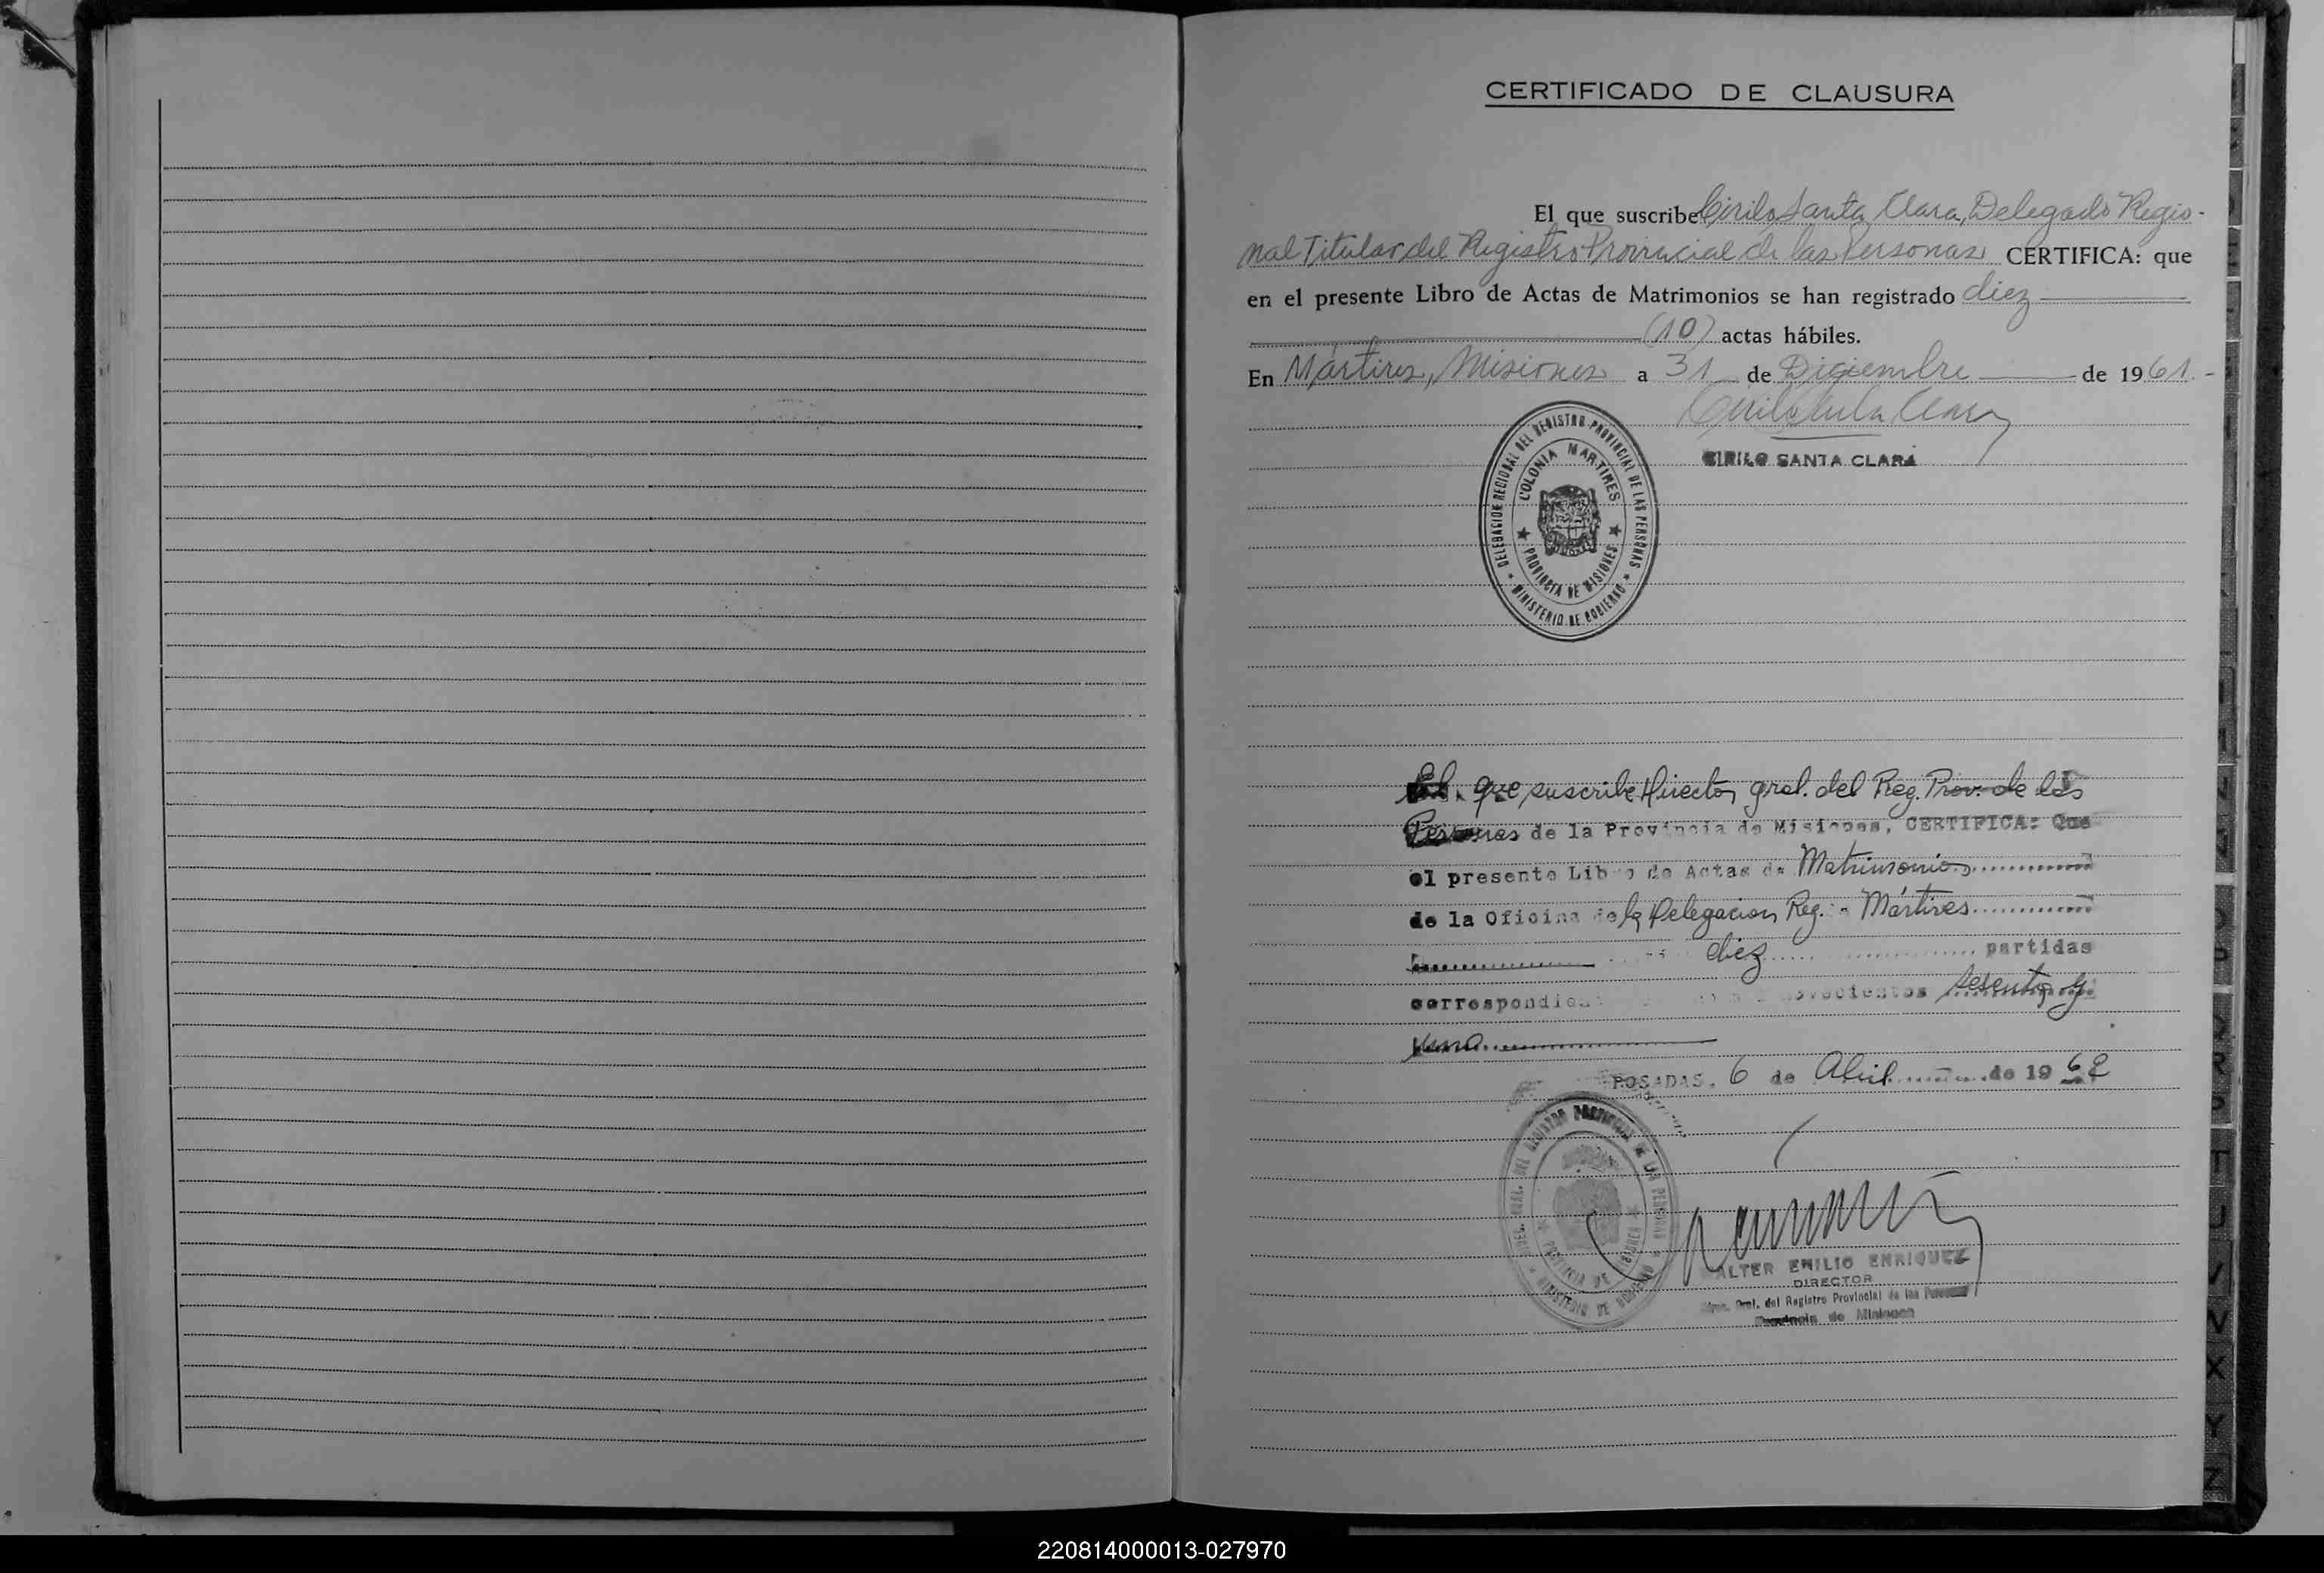 CERTIFICADO DE CLAUSURA
El que suscribe Cirilo Santa Clara, Delegado Regio-
nal Titular del Registro Provincial de las Personas CERTIFICA: que
en el presente Libro de Actas de Matrimonios se han registrado diez
(10) actas hábiles.
En Mártires, Misiones a 31 de Diciembre de 1961.-
Cirilo Santa Clara
CIRILO SANTA CLARA
DELEGACION REGIONAL DEL REGISTRO PROVINCIAL DE LAS PERSONAS
COLONIA MARTIRES
PROVINCIA DE MISIONES
MINISTERIO DE GOBIERNO
El que suscribe Director gral. del Reg. Prov. de las
Personas de la Provincia de Misiones, CERTIFICA: Que
el presente Libro de Actas de Matrimonios
de la Oficina de la Delegacion Reg. - Mártires
diez partidas
novecientos sesenta y
uno
POSADAS, 6 de Abril de 1962
DEL REGISTRO PROVINCIAL DE LAS PERSONAS
PROVINCIA DE MISIONES
MINISTERIO DE GOBIERNO
WALTER EMILIO ENRIQUEZ
DIRECTOR
Gral. del Registro Provincial de las Personas
Provincia de Misiones
T
U
V
X
Y
Z
220814000013-027970